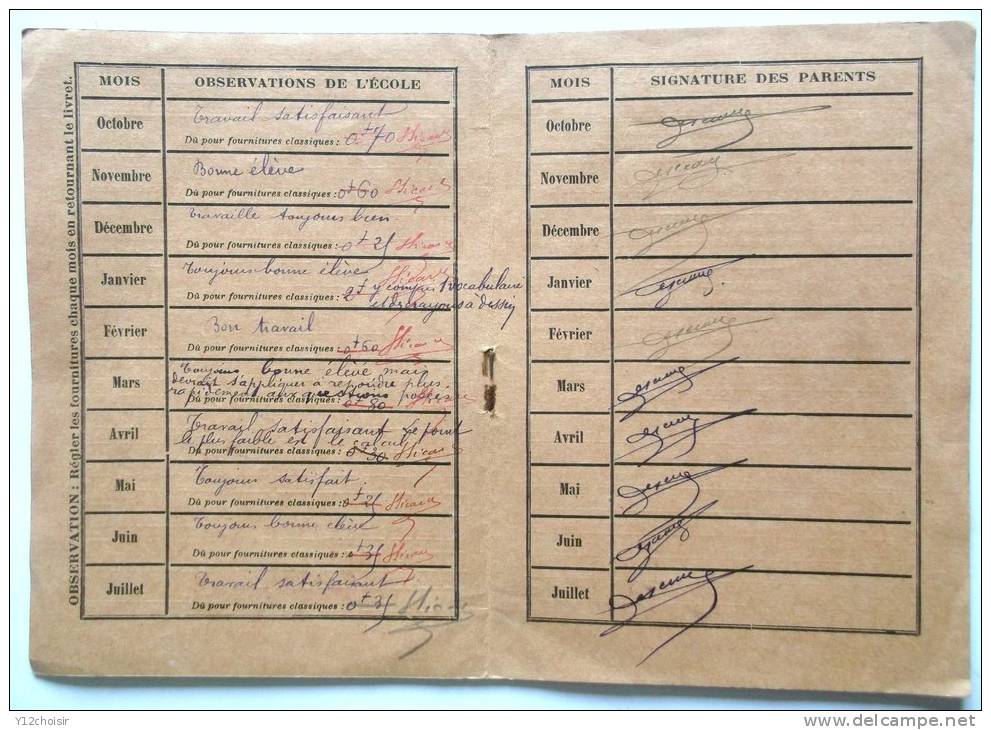 OBSERVATION : Régler les fournitures chaque mois en retournant le livret.
MOIS OBSERVATIONS DE L'ÉCOLE
Octobre Travail satisfaisant
Dû pour fournitures classiques : 0f70
Novembre Bonne élève
Dû pour fournitures classiques : 0f60
Décembre Travaille toujours bien.
Dû pour fournitures classiques : 0f25
Janvier Toujours bonne élève
2f y compris 1 vocabulaire
et des crayons a dessin
Février Bon travail
Dû pour fournitures classiques : 0f60
Mars Toujours bonne élève mais
devrait s'appliquer à répondre plus
rapidement aux questions
Dû pour fournitures classiques : 0f80
Avril Travail satisfaisant le point
le plus faible est le calcul
Dû pour fournitures classiques : 0f30
Mai Toujours satisfait.
Dû pour fournitures classiques : 0f25
Juin Toujours bonne élève
Dû pour fournitures classiques : 0f35
Juillet Travail satisfaisant
Dû pour fournitures classiques : 0f35
MOIS SIGNATURE DES PARENTS
Octobre
Novembre
Décembre
Janvier
Février
Mars
Avril
Mai
Juin
Juillet
Y12choisir
www.delcampe.net